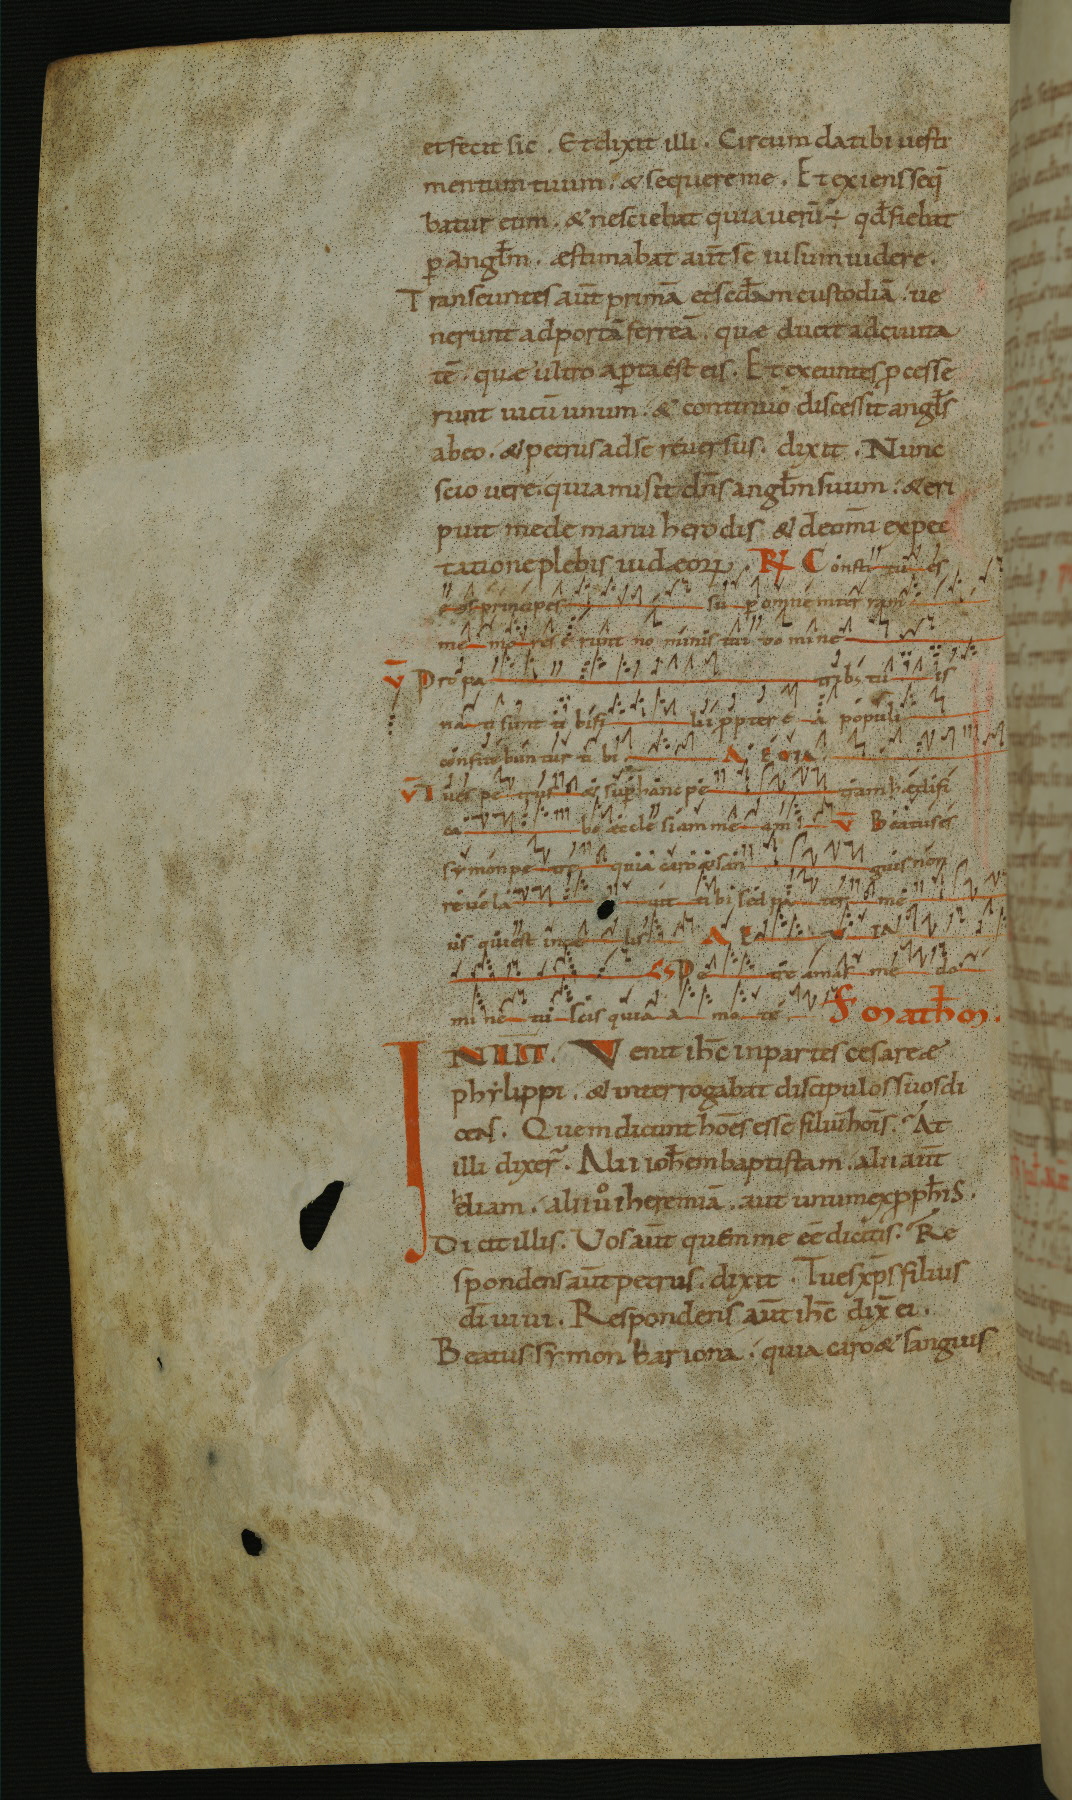 et fecit sic . Et dixit illi . Circumda tibi vesti
mentum tuum . & sequere me . Et exiens seq̄
batur eum . & nesciebat quia uerū ÷ qđ fiebat
ꝑ Angłm . æstimabat aūt se uisum uidere .
Transeuntes aūt primā et secđam custodiā . ue
nerunt ad portā ferreā . quæ ducit ad ciuita
tē . quæ ultro aꝑta est eis . Et exeuntes ꝓcesse
runt uicū unum . & continuo discessit angłs
ab eo . & petrus ad se reuersus . dixit . Nunc
scio uere . quia misit dn̄s angłm suum . & eri
puit me de manu herodis & de om̄i expec
tatione plebis iudæoꝝ . R̷ Constitues
eos principes su ꝑ omnē inter ram
me mo res e runt no minis tui do mine
v̄ Pro pa tribꝫ tu is
na ti sunt ti bi fi lii ꝓpter e a populi
confite bun tur ti bi A E VIA
v̄ Tu es pe trus & suꝑ hanc pe tram hædifi
ca bo æccle siam me am v̄ Beatus es
symon pe tre quia caro & san guis non
reuela uit tibi sed pa ter me
us qui est in cæ lis A E V IA
Pe tre amas me do
mi ne tu scis quia a mo te .
IN ILLT . Venit ihc̄ in partes cesareæ
phylippi . & interrogabat discipulos suos di
cens . Quem dicunt hoēs esse filiū hoīs . At
illi dixer̄ . Alii iohēm baptistam . alii aūt
heliam . alii uͦ iheremiā . aut unum ex ꝓph̄is .
Dicit illis . Vos aūt quem me eē dicitis . Re
spondens aūt petrus . dixit . Tu es xp̄s filius
dī uiui . Respondens aūt ihc̄ dix̄ ei .
Beatus symon bar iona . quia caro & sanguis